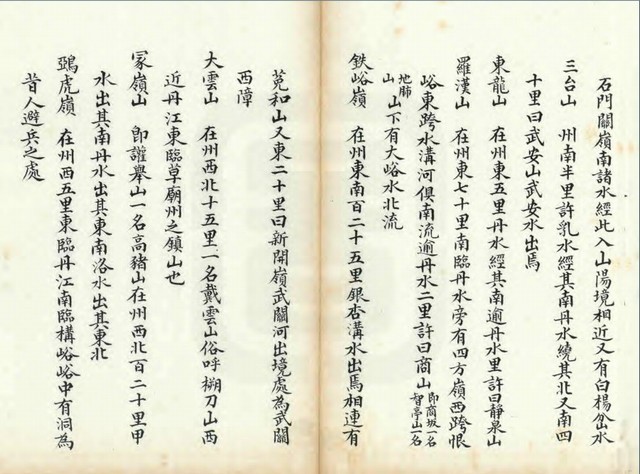 石門關嶺南諸水經此入山陽境相近又有白楊岔水
三台山　州南半里許乳水經其南丹水繞其北又南四
十里曰武安山武安水出焉
東龍山　在州東五里丹水經其南逾丹水里許曰靜泉山
羅漢山　在州東七十里南臨丹水旁有四方嶺西跨恨
峪東跨水溝河俱南流逾丹水二里許曰商山即商坂一名
智亭山一名
地肺
山　山下有大峪水北流
鉄峪嶺　在州東南百二十五里銀杏溝水出焉相連有
莧和山又東二十里曰新開嶺武關河出境處為武關
西障
大雲山　在州西北十五里一名戴雲山俗呼掤刀山西
近丹江東臨草廟州之鎮山也
冢嶺山　即讙舉山一名高豬山在州西北百二十里甲
水出其南丹水出其東南洛水出其東北
鵶虎嶺　在州西五里東臨丹江南臨構峪峪中有洞為
昔人避兵之處